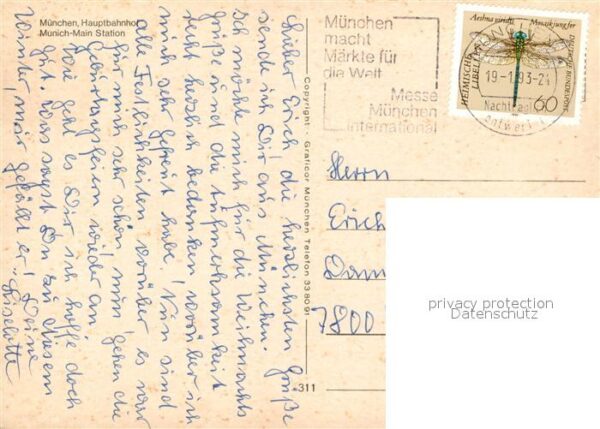 München, Hauptbahnhof
Munich-Main Station
Lieber Erich die herzlichsten Grüße
sende ich Dir aus München.
Ich möchte mich für die Weihnachts
grüße und die Aufmerksamkeit
recht herzlich bedanken, worüber ich
mich sehr gefreut habe. Nun sind
alle Festlichkeiten vorüber es war
für mich sehr schön, nun gehen die
Geburtagsfeiern wieder an.
Wie geht es Dir ich hoffe doch
gut. Was sagst Du zu diesem
Winter, mir gefällt er! Deine
Liselotte
Copyright · Graficor München Telefon 338091
311
München
macht
Märkte für
die Welt
Messe
München
International
Aeshna viridis Mosaikjungfer
HEIMISCHE LIBELLEN
DEUTSCHE BUNDESPOST
60
19-1.93-21
Herrn
Erich
7800
privacy protection
Datenschutz